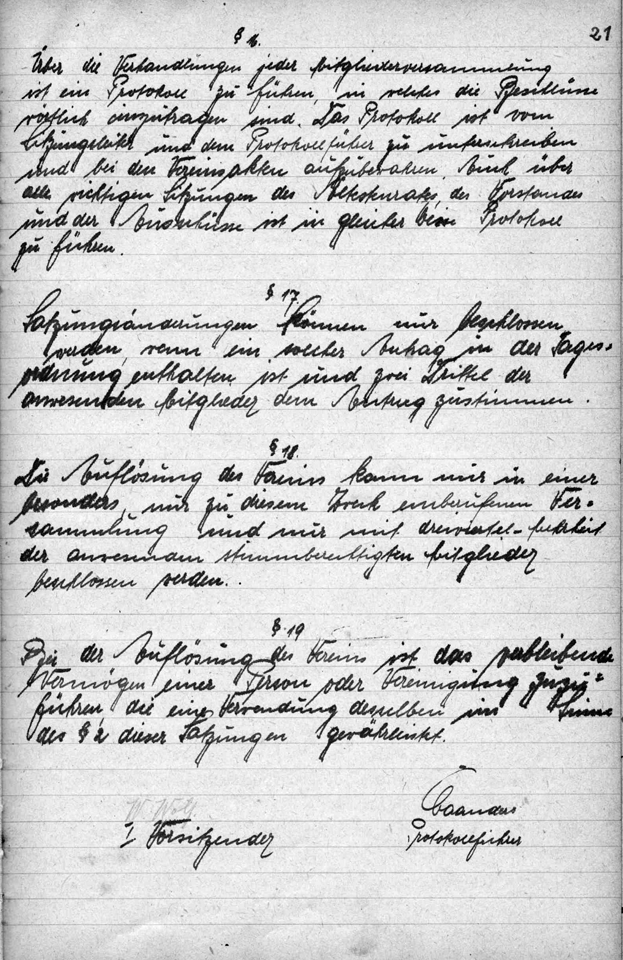 21
§ 16.
Über die Verhandlungen jeder Mitgliederversammlung
ist ein Protokoll zu führen, in welches die Beschlüsse
wörtlich einzutragen sind. Das Protokoll ist vom
Sitzungsleiter und dem Protokollführer zu unterschreiben
und bei den Vereinsakten aufzubewahren. Auch über
alle wichtigen Sitzungen des des Vorstandes
und der Ausschüsse ist in gleicher Protokoll
zu führen.
§ 17.
Satzungsänderungen können nur beschlossen
werden, wenn ein solcher Antrag in der Tages-
ordnung enthalten ist und zwei Drittel der
anwesenden Mitglieder dem Antrag zustimmen.
§ 18.
Die Auflösung des Vereins kann nur in einer
besonders, nur zu diesem Zweck einberufenen Ver-
sammlung und nur mit dreiviertel-Mehrheit
der stimmberechtigten Mitglieder
beschlossen werden.
§ 19
Bei der Auflösung des Vereins ist das verbleibende
Vermögen einer Person oder Vereinigung zuzu-
führen, die eine Verwendung desselben im Sinne
des § 2 dieser Satzungen gewährleistet.
I Vorsitzender
Protokollführer